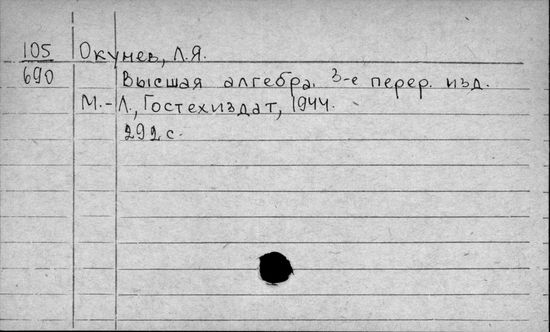 105 Окунев, Л.Я.
690 Высшая алгебра. 3-е перер. изд.
М.-Л., Гостехиздат, 1944.
292 с.